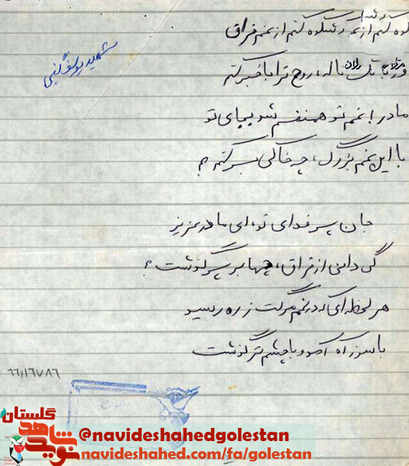 کنم از غم فراق
ناله، روح ترا با خبر کنم
مادر! غم تو همنفسم شد بجای تو
با این غم بزرگ، چه خاکی بسر کنم؟
شهید یوسف
جان پسر فدای تو، ای مادر عزیز
کی دانی از فراق، چها بر پسر گذشت؟
هر لحظه‌ای که در غم مرگت ز ره رسید
با سوز آه آمد و با چشم تر گذشت
گلستان
نوید شاهد
@navideshahedgolestan
navideshahed.com/fa/golestan